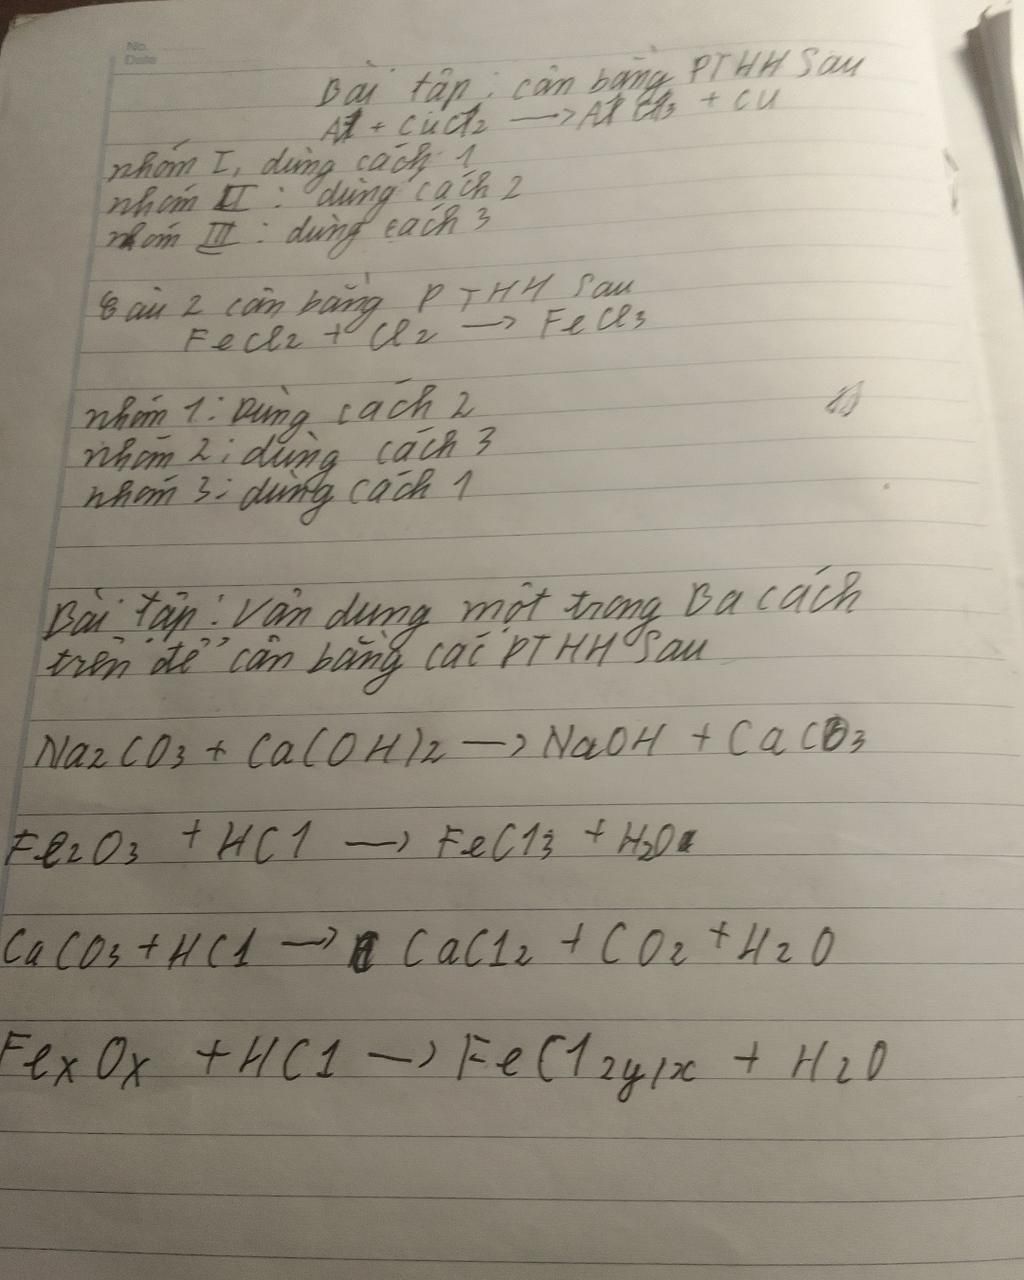 No.
Date
Bài tập: cân bằng PTHH Sau
Al + CuCl2 → AlCl3 + Cu
nhóm I, dùng cách 1
nhóm II: dùng cách 2
nhóm III: dùng cách 3
Câu 2 cân bằng PTHH Sau
FeCl2 + Cl2 → FeCl3
nhóm 1: Dùng cách 2
nhóm 2: dùng cách 3
nhóm 3: dùng cách 1
Bài tập: Vận dụng một trong Ba cách
trên để cân bằng các PTHH Sau
Na2CO3 + Ca(OH)2 → NaOH + CaCO3
Fe2O3 + HCl → FeCl3 + H2O
CaCO3 + HCl → CaCl2 + CO2 + H2O
FexOx + HCl → FeCl2y/x + H2O